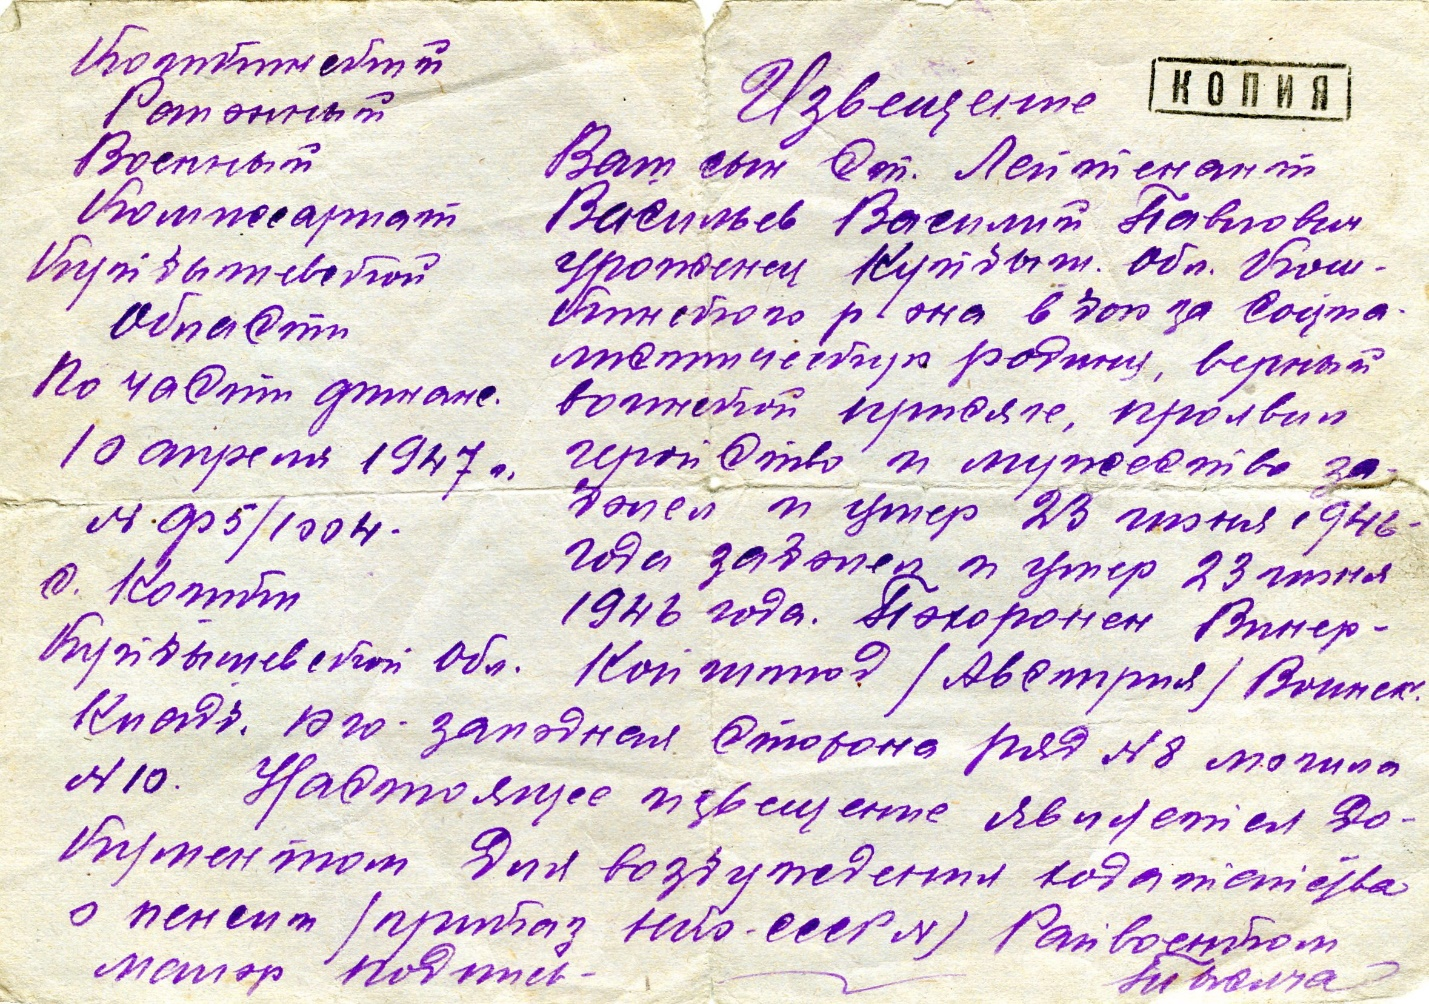 Кошкинский
Районный
Военный
Комиссариат
Куйбышевской
Области
По части финанс.
10 апреля 1947 г.
N Ф5/1004.
с. Кошки
Куйбышевской Обл.
КОПИЯ
Извещение
Ваш сын Ст. Лейтенант
Васильев Василий Павлович
уроженец Куйбыш. Обл. Кош-
кинского р-она в бою за Социа-
листическую родину, верный
воинской присяге, проявил
геройство и мужество за-
болел и умер 23 июня 1946-
года заболел и умер 23 июня
1946 года. Похоронен Винер-
Койштод /Австрия/ Воинск.
Кладб. юго-западная сторона ряд N 8 могила
N 10. Настоящее извещение является До-
кументом Для возбуждения ходатайства
о пенсии /приказ НКО-СССР N/ Райвоенком
Майор подпись-